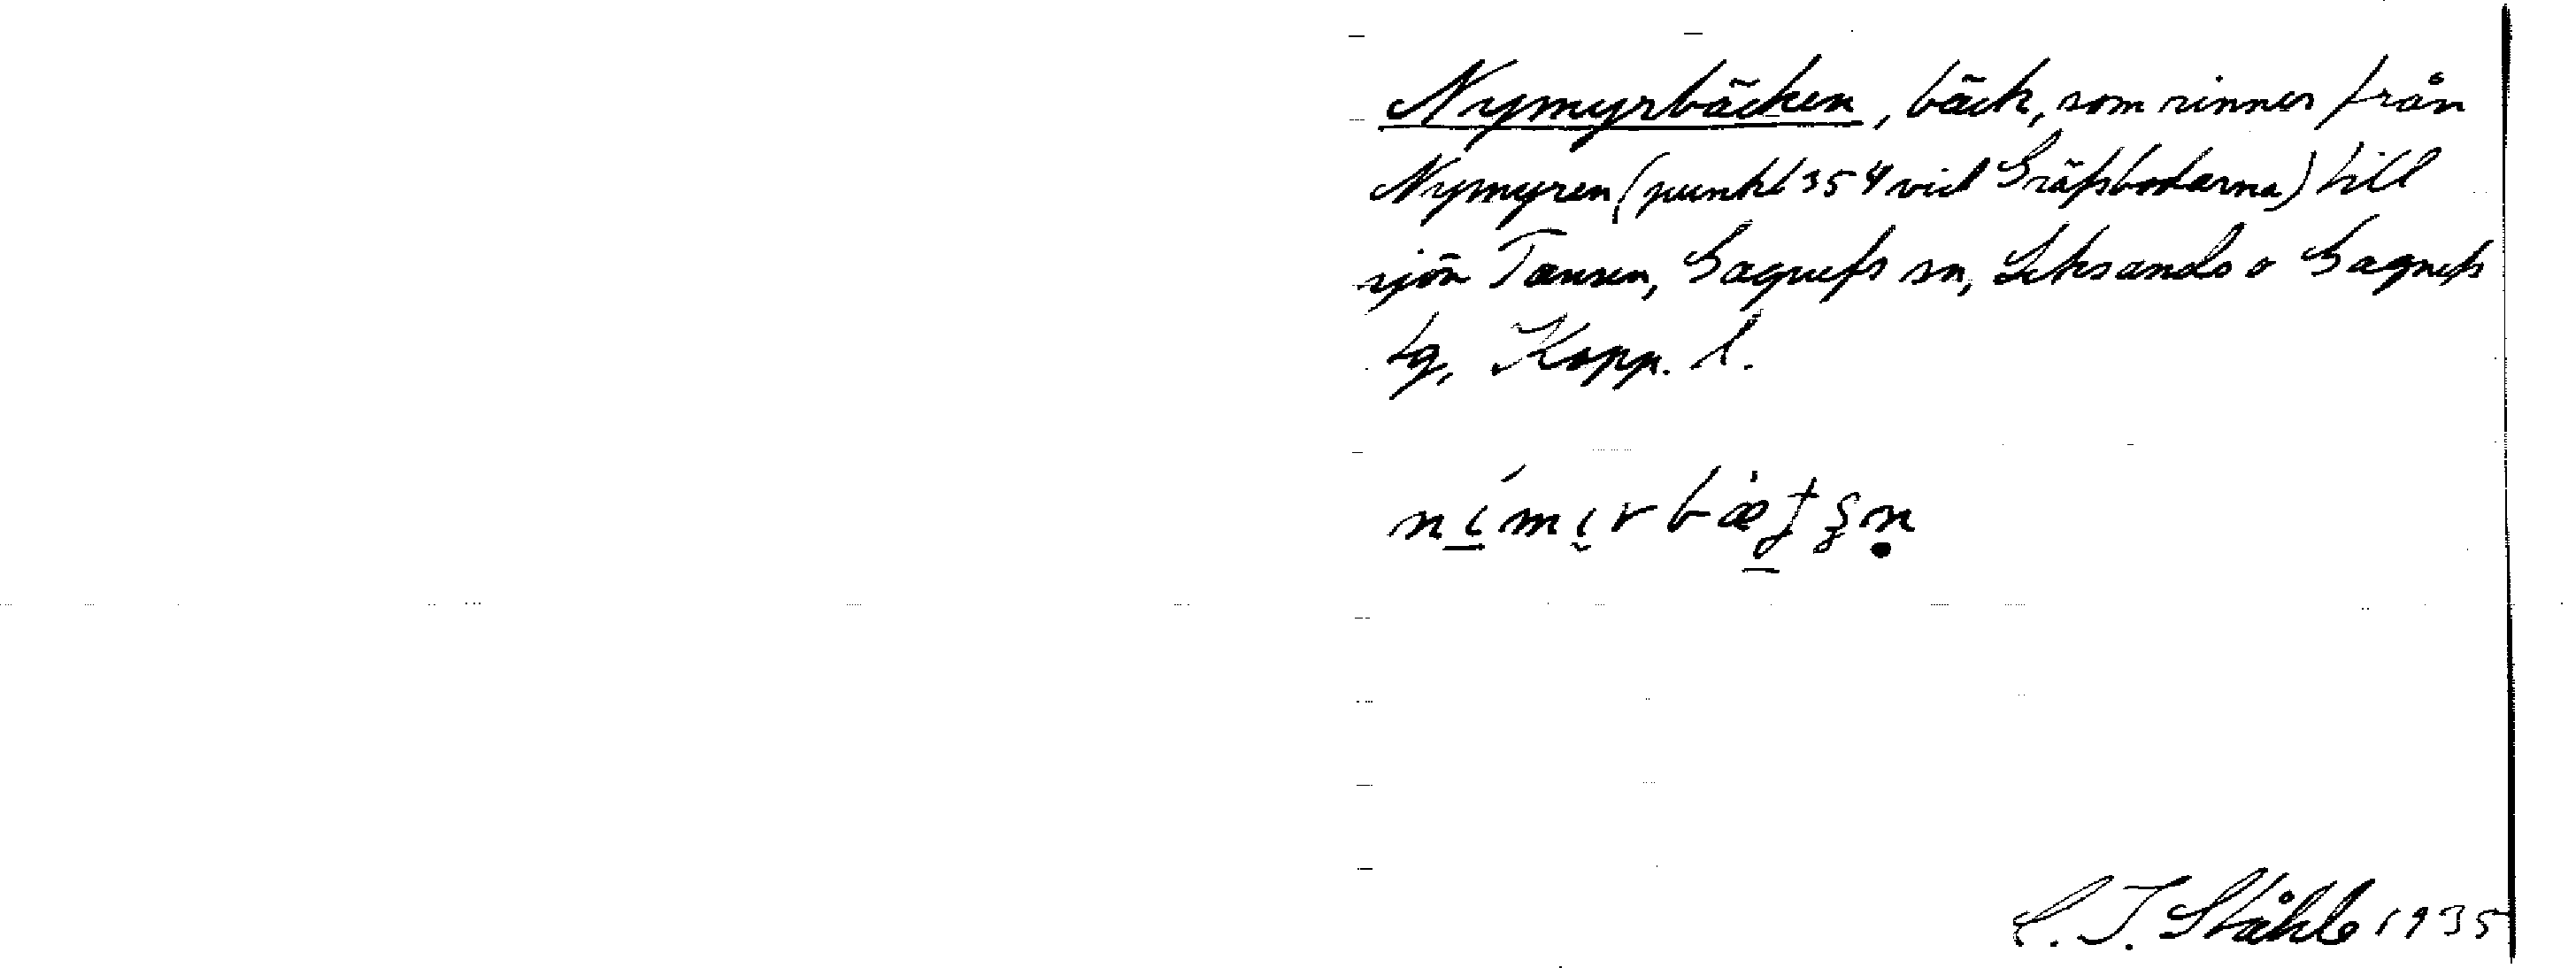 Nymyrbäcken, bäck, som rinner från
Nymyren (punkt 354 vid Gräfsbodarna) till
sjön Tansen, Gagnefs sn, Leksands o Gagnefs
tg, Kopp. l.
C. I. Ståhle 1935